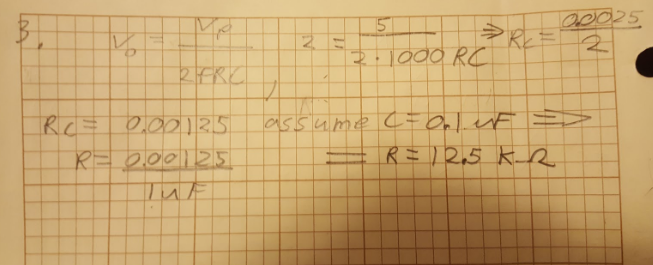 3. Vo = Vp / 2fRC , 2 = 5 / 2·1000 RC ⇒ Rc = 0.0025 / 2
Rc = 0.00125 assume C = 0.1 uF ⇒
R = 0.00125 / 1uF = R = 12.5 KΩ